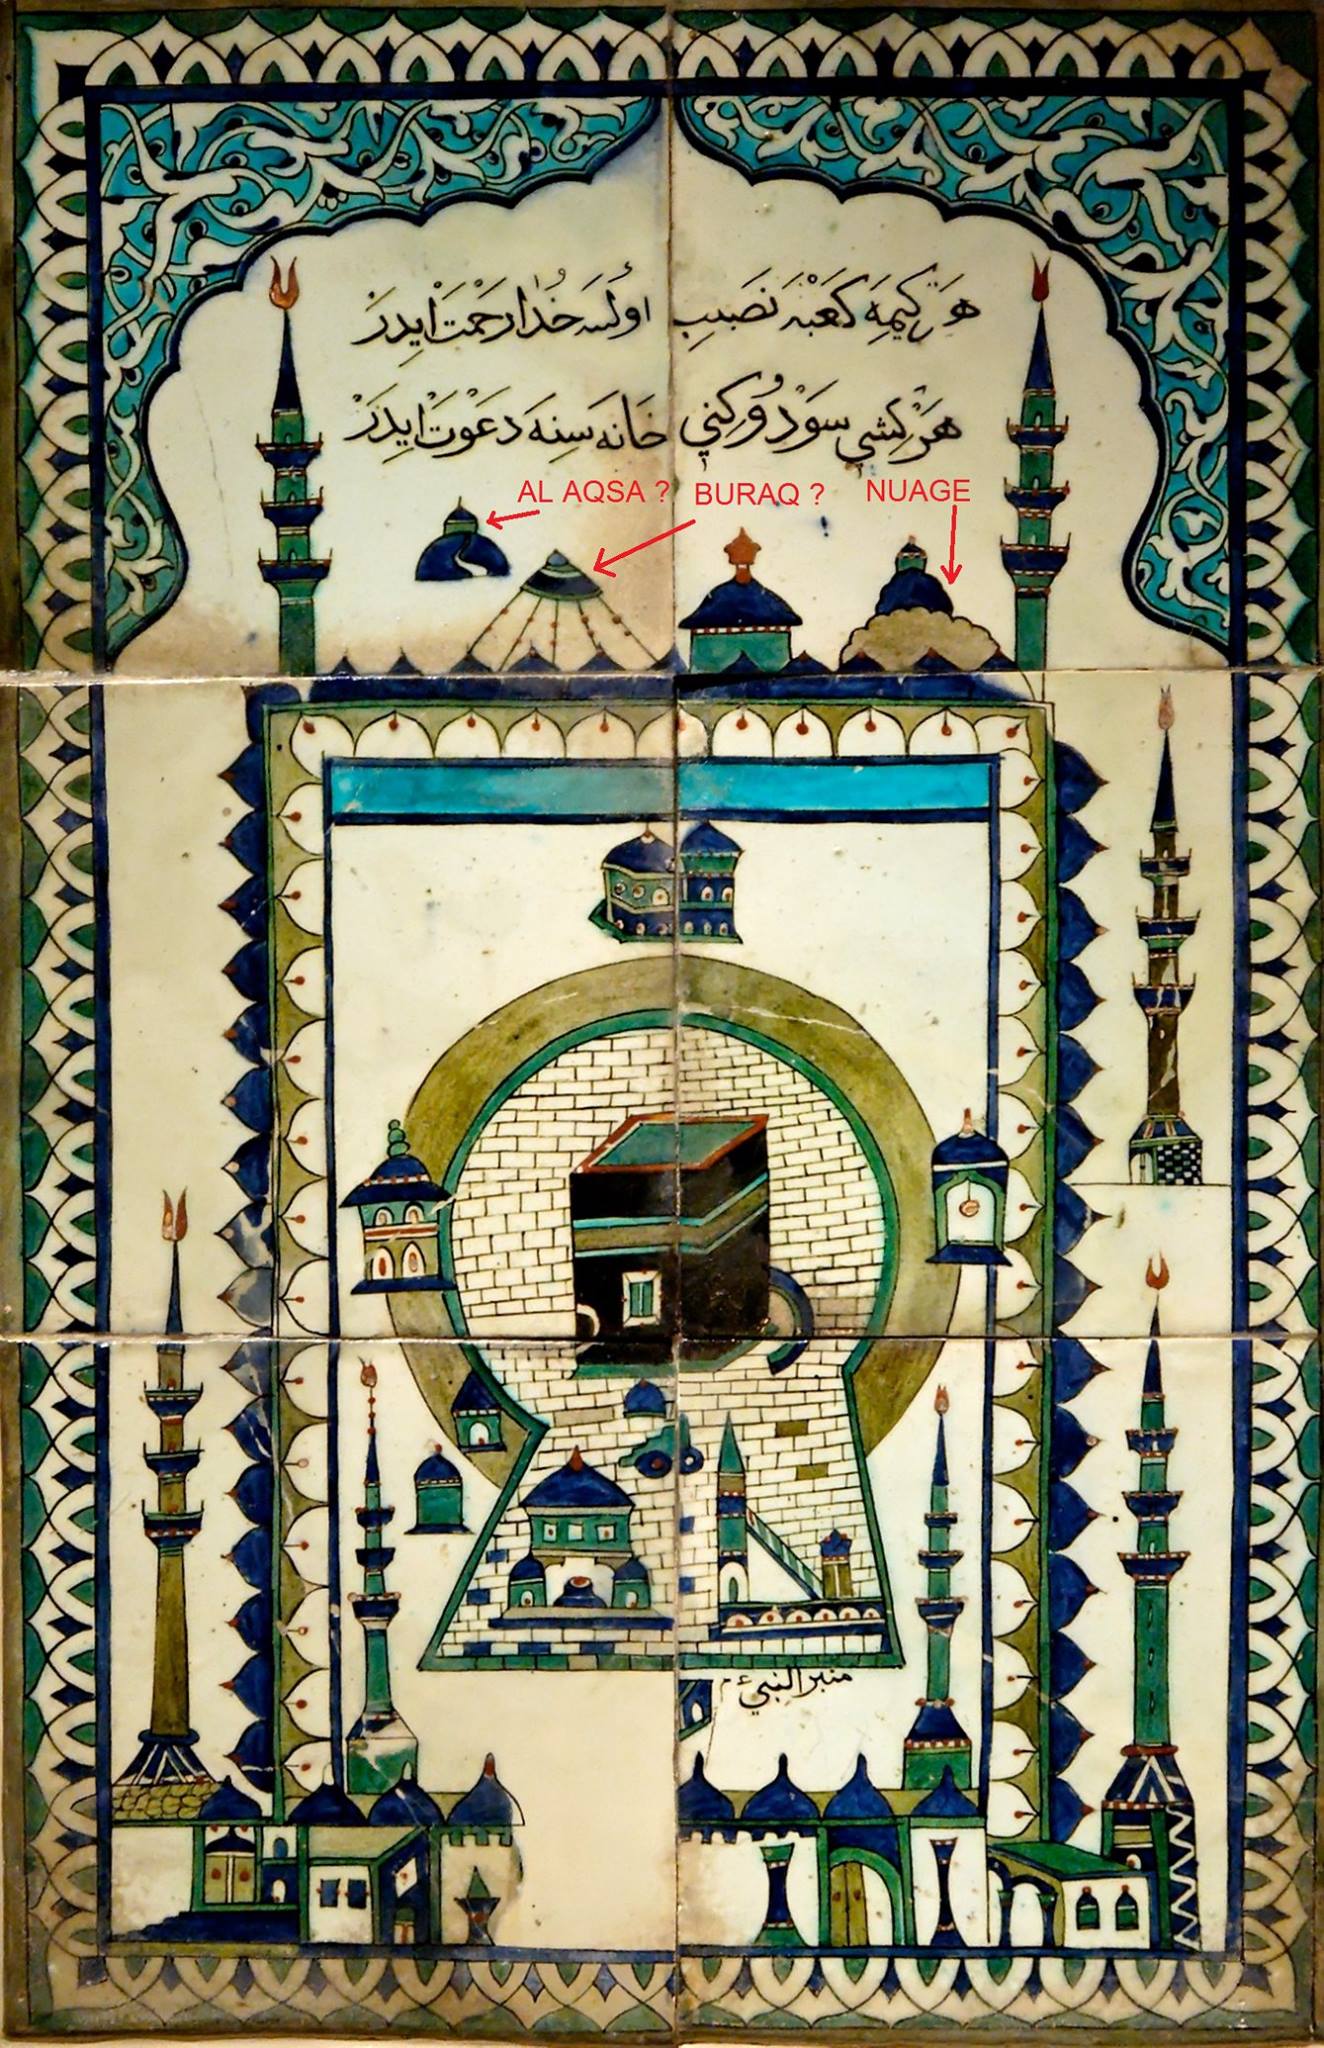 هَرْ كِيمَه كَعْبَه نَصِيب اولسَه خُدا رَحْمَتْ ايدَرْ
هَرْ كشي سَوْدُوكِني خَانَه سِنَه دَعْوَتْ ايدَرْ
AL AQSA ? BURAQ ? NUAGE
منبر النبي ءم